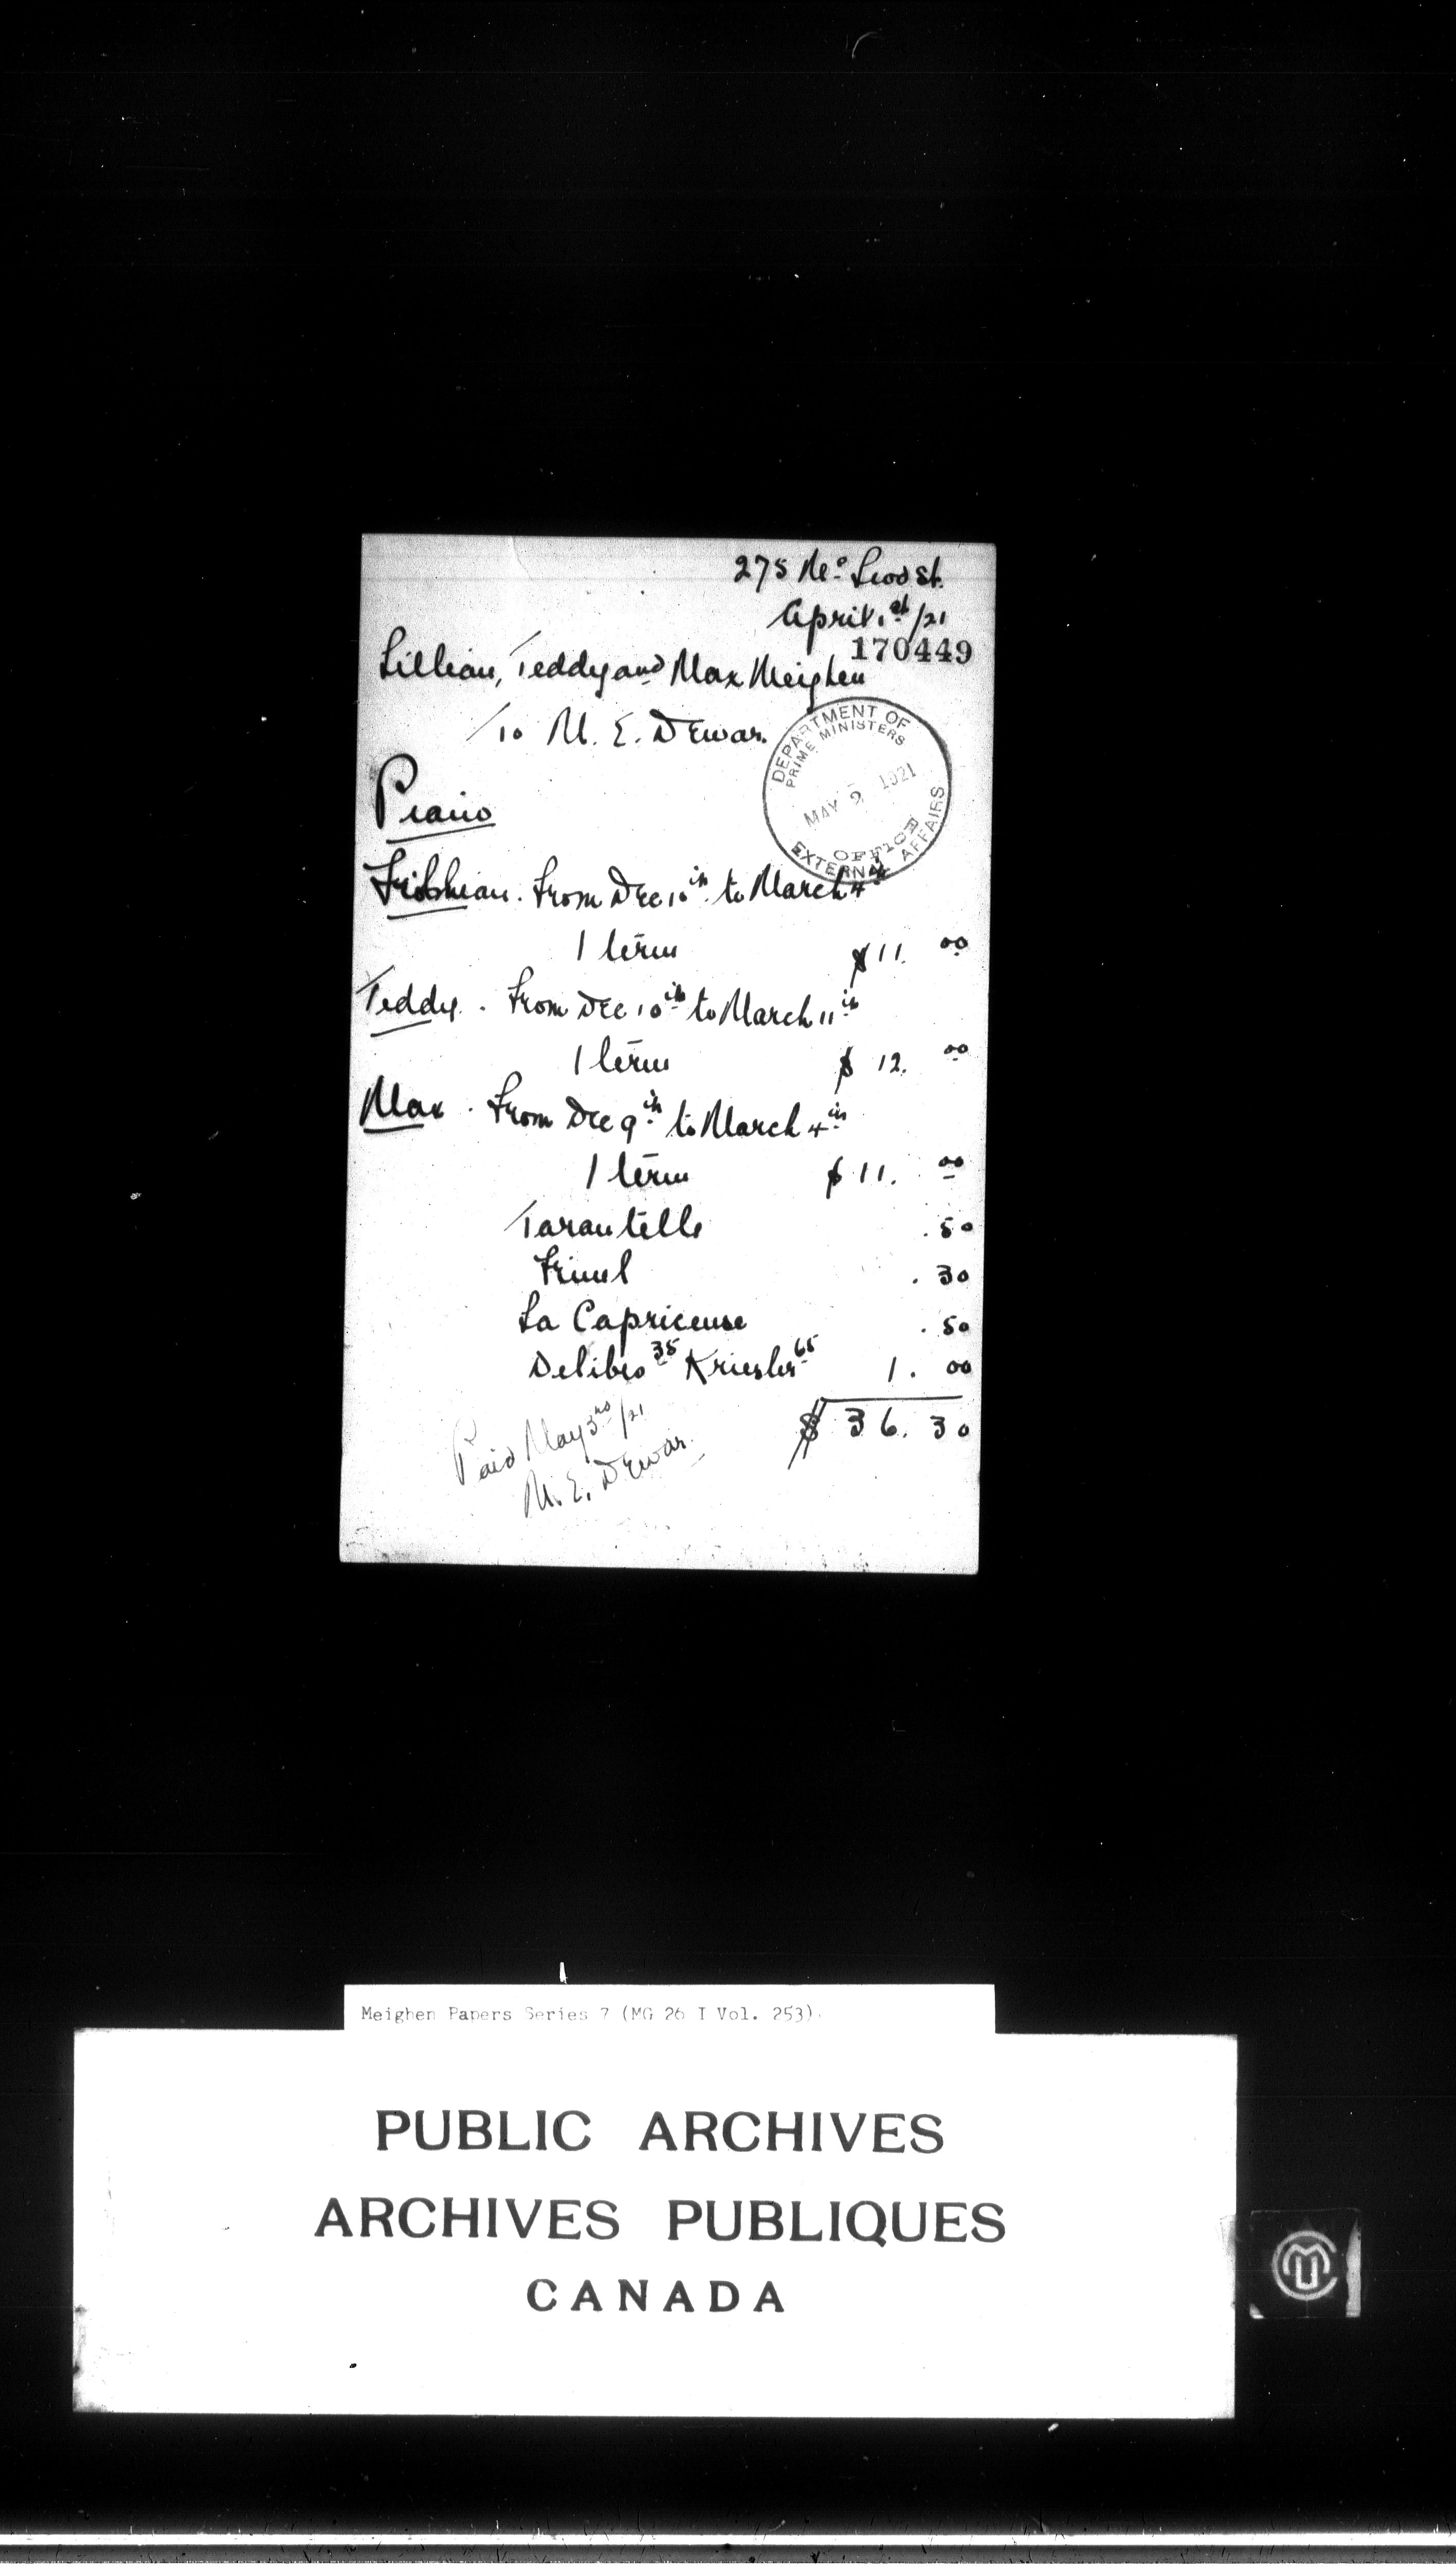 275 McLeod St.
April 1st/21
170449
Lillian, Teddy and Max Meighen
To M. E. Dewar.
DEPARTMENT OF
PRIME MINISTERS
MAY 2 1921
OFFICE
EXTERNAL AFFAIRS
Piano
Lillian. From Dec 10th to March 4th
1 term $11. 00
Teddy. From Dec 10th to March 11th
1 term $ 12. 00
Max. From Dec 9th to March 4th
1 term $ 11. 00
Tarantelle .50
Friml .30
La Capriceuse .50
Delibes 35 Kriesler 65 1. 00
$ 36. 30
Paid May 3rd/21
M. E. Dewar.
Meighen Papers Series 7 (MG 26 I Vol. 253)
PUBLIC ARCHIVES
ARCHIVES PUBLIQUES
CANADA